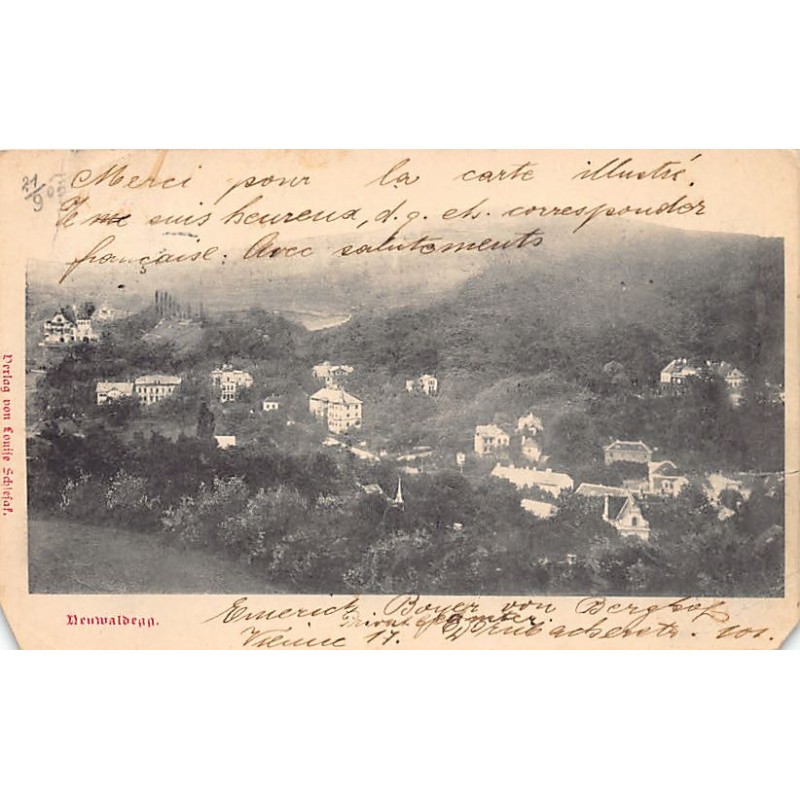 21/9 05
Merci pour la carte illustré.
Je me suis heureux, d. g. ets. corresponder
française. Avec salutements
Verlag von Louise Schlesak.
Neuwaldegg.
Emerich Boyer von Berghof
Vienne 17. Dornbacherstr. 101.